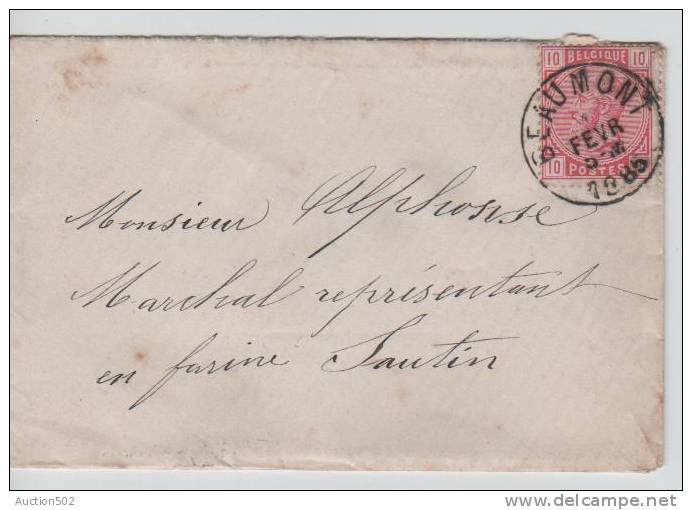 10 BELGIQUE 10
BEAUMONT
FEVR
1885
10 POSTES
Monsieur Alphonse
Marchal représentant
en farine Sautin
Auction502
delcampe.net